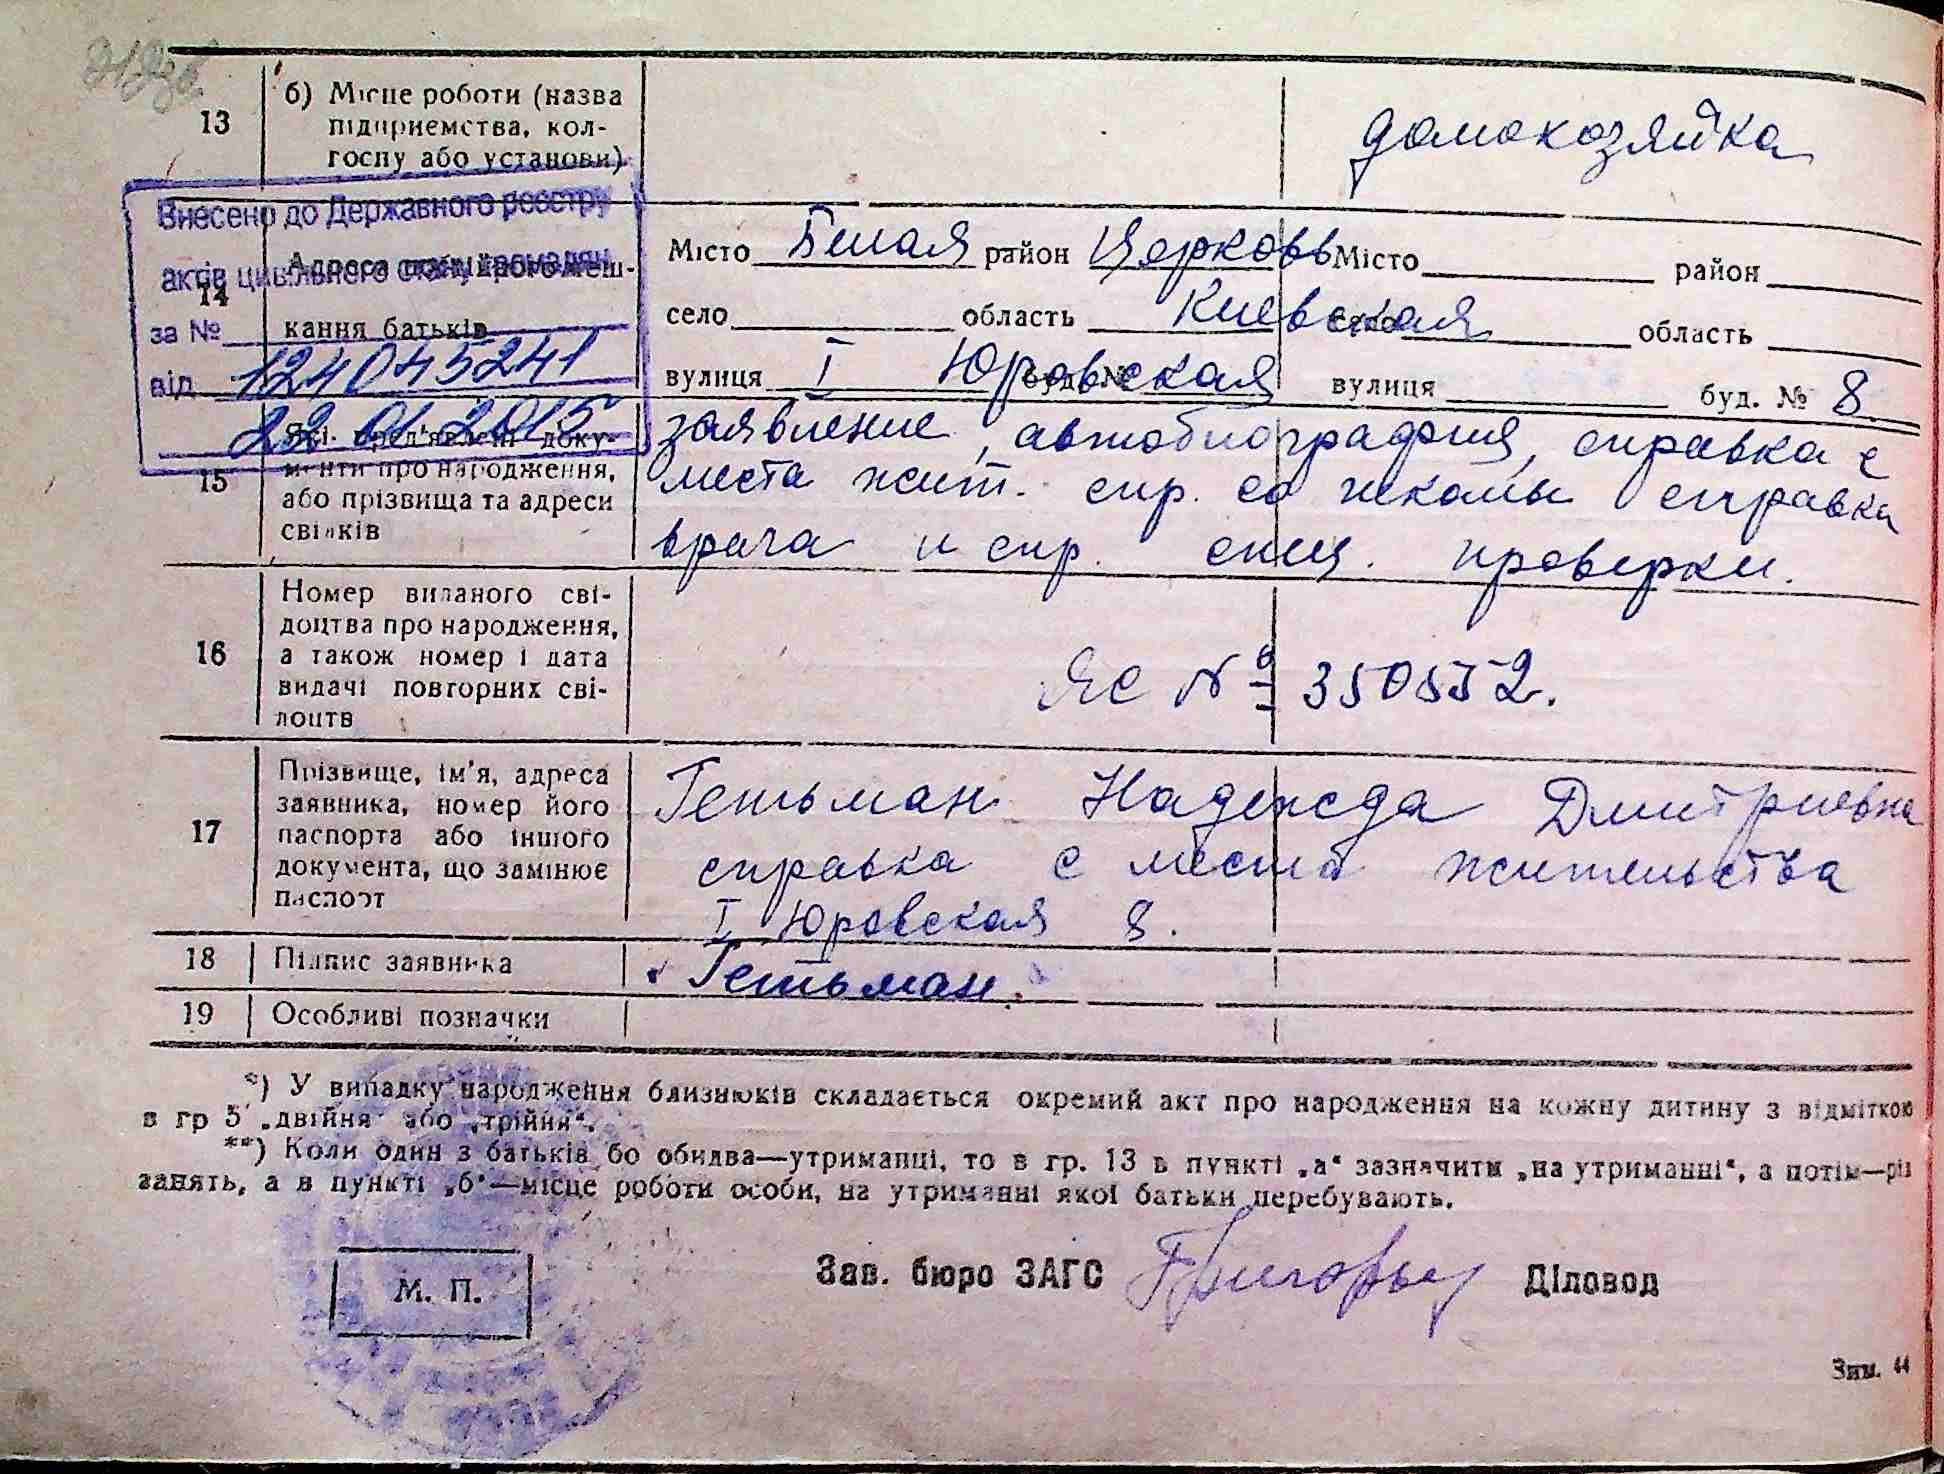 13 б) Місце роботи (назва
підприємства, кол-
госпу або установи)
домохозяйка
Внесено до Державного реєстру
актів цивільного стану громадян
за № 124045241
від 22 01 2015
14 Адреса постійного меш-
кання батьків
Місто Белая район Церковь Місто район
село область Киевская село область
вулиця І Юровская буд. № вулиця буд. № 8
15 Які пред'явлені доку-
менти про народження,
або прізвища та адреси
свідків
заявление, автобиография, справка с
места жит. спр. со школы справка
врача и спр. спец. проверки.
16 Номер виданого сві-
доцтва про народження,
а також номер і дата
видачі повторних сві-
доцтв
ЯС № 350552.
17 Прізвище, ім'я, адреса
заявника, номер його
паспорта або іншого
документа, що замінює
паспорт
Гетьман Надежда Дмитриевна
справка с места жительства
І Юровская 8.
18 Підпис заявника Гетьман.
19 Особливі позначки
*) У випадку народження близнюків складається окремий акт про народження на кожну дитину з відміткою
в гр 5 „двійня" або „трійня".
**) Коли один з батьків бо обидва—утриманці, то в гр. 13 в пункті „а" зазначити „на утриманні", а потім—рід
занять, а в пункті „б"—місце роботи особи, на утриманні якої батьки перебувають.
М. П.
Зав. бюро ЗАГС Діловод
Зим. 44